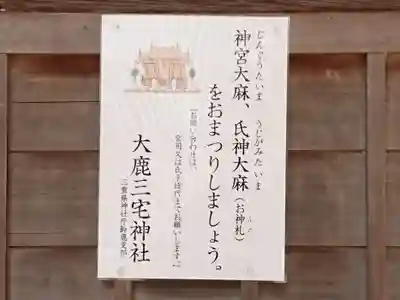 じんぐうたいま うじがみたいま
神宮大麻、氏神大麻(お神札)
をおまつりしましょう。
「お問い合わせは、
宮司又は氏子総代までお願いします。」
大鹿三宅神社
三重県神社庁鈴鹿支部